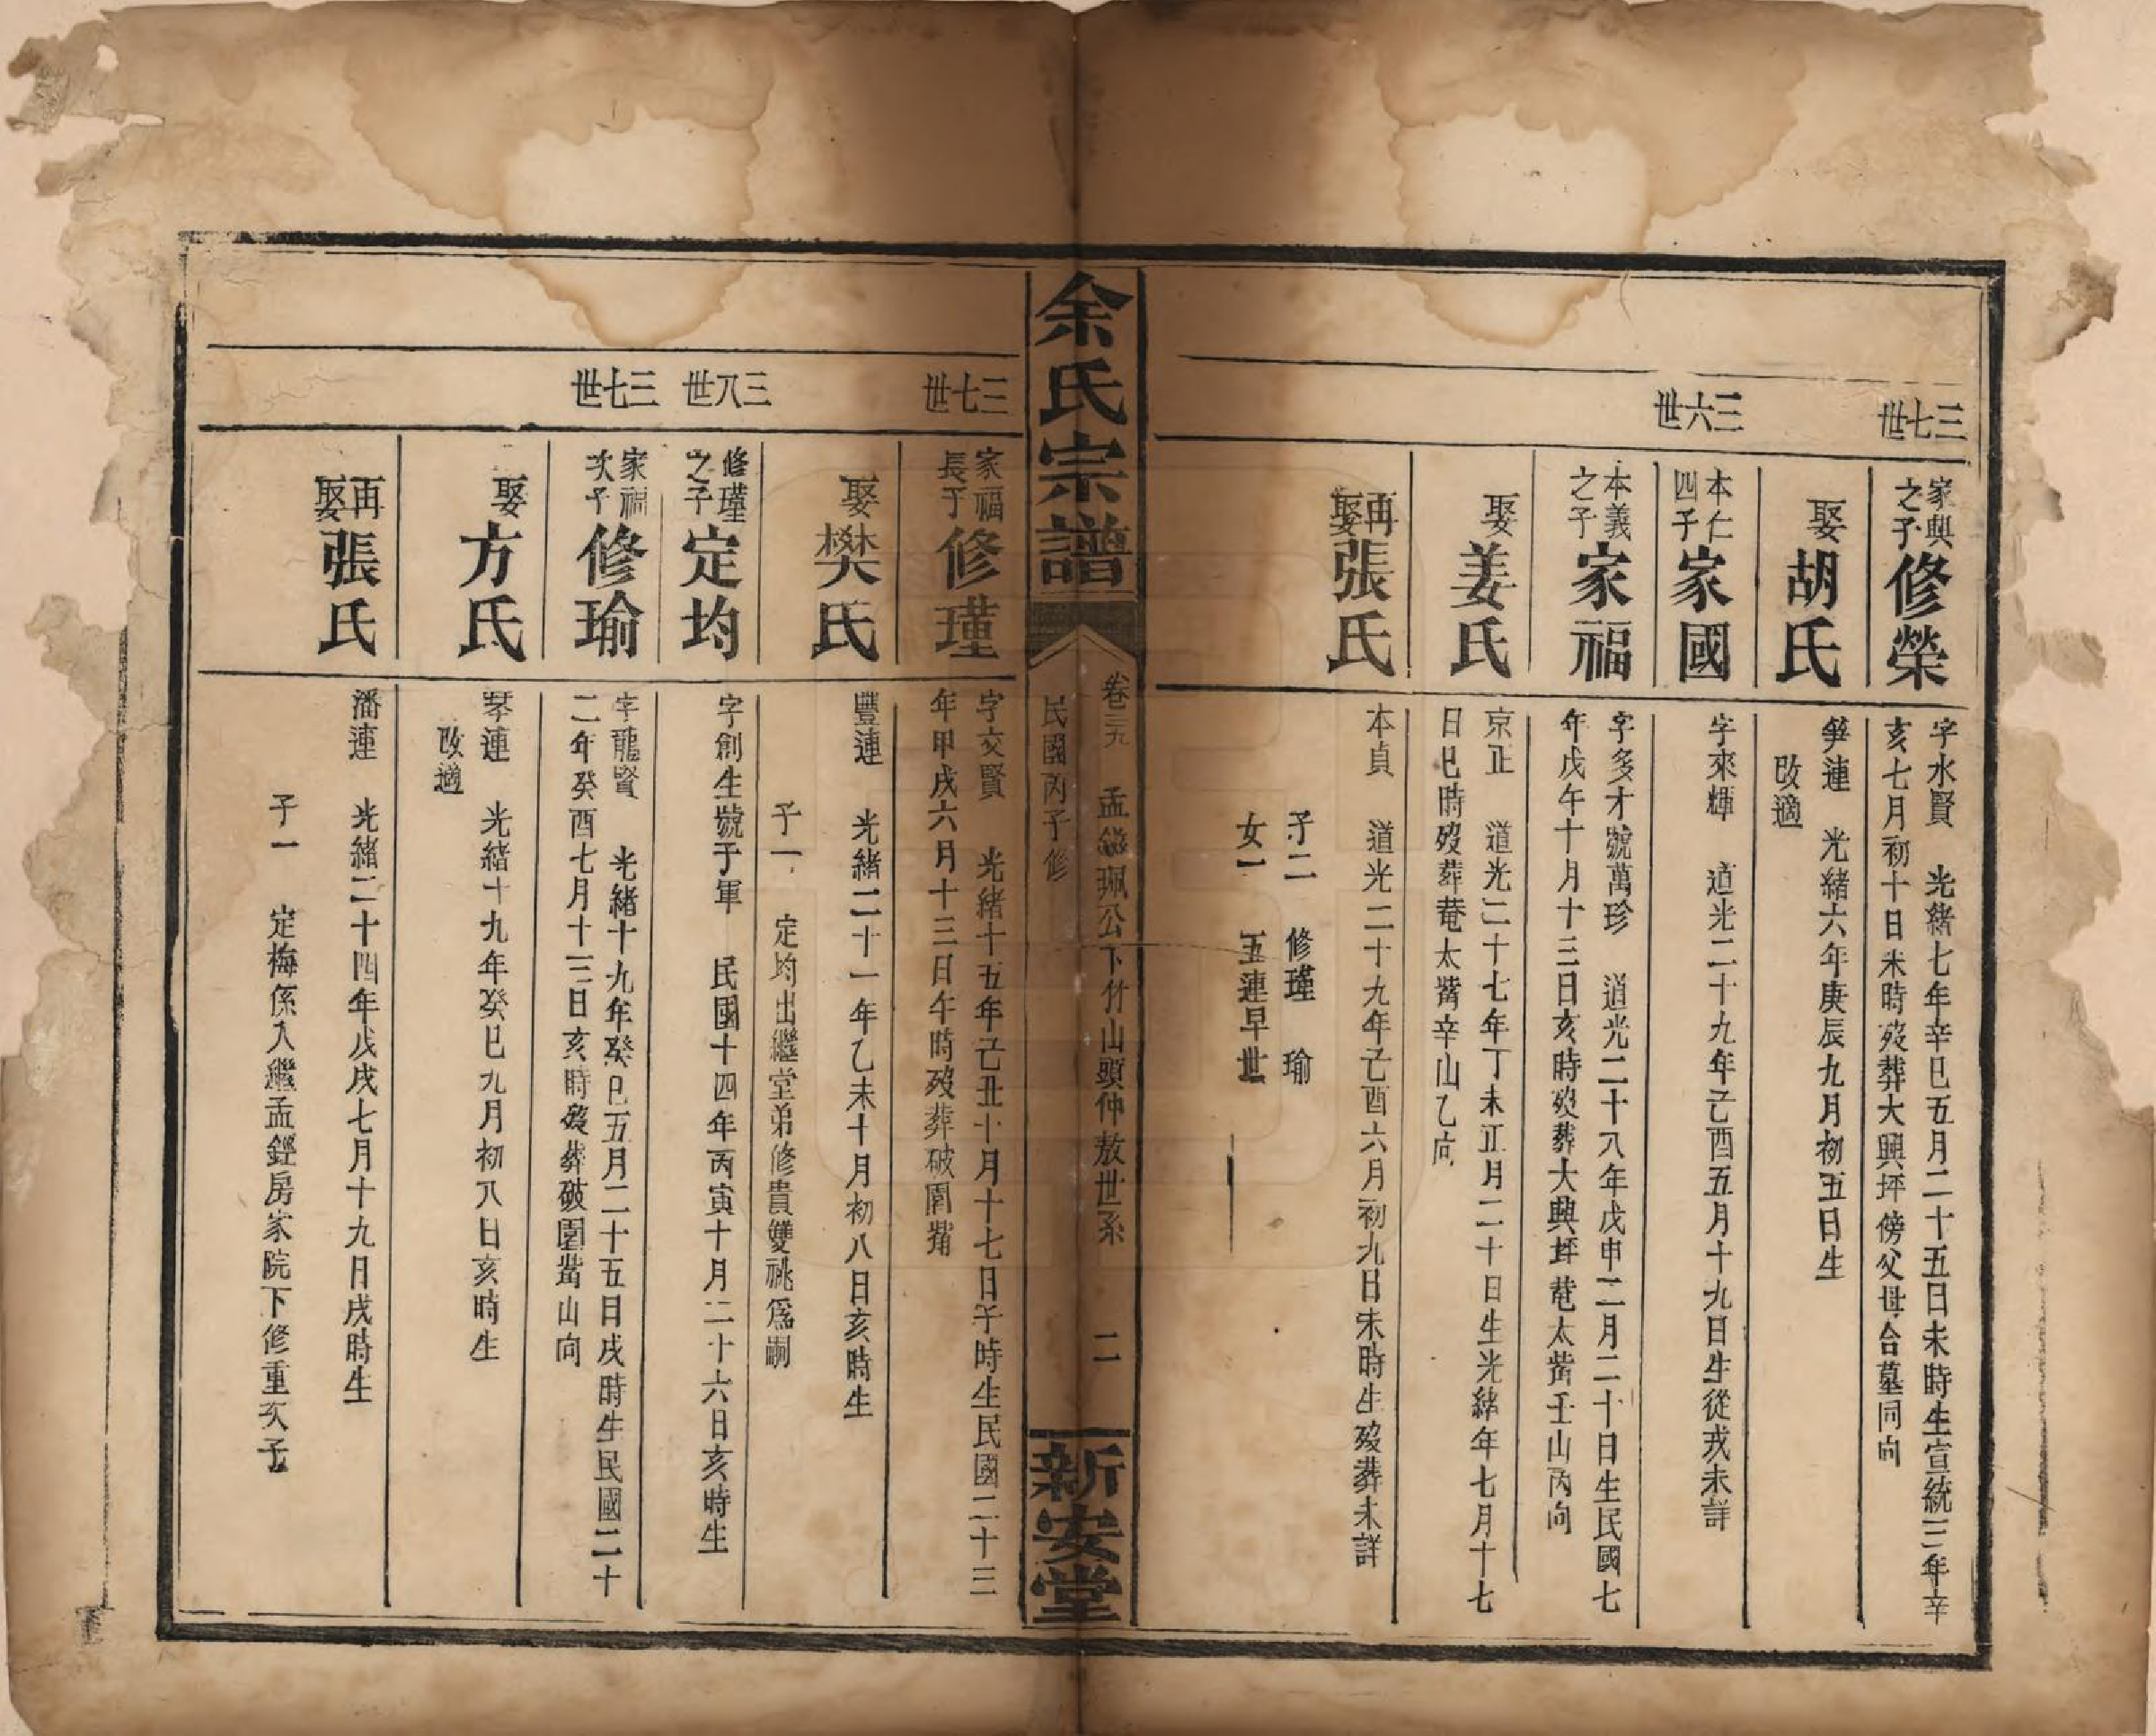 三七世
家興之子修榮
字水賢　光緒七年辛巳五月二十五日未時生宣統三年辛
亥七月初十日未時歿葬大興坪傍父母合墓同向
娶胡氏
箏連　光緒六年庚辰九月初五日生
改適
三六世
本仁四子家國
字來輝　道光二十九年己酉五月十九日生從戎未詳
本義之子家福
字多才號萬珍　道光二十八年戊申二月二十日生民國七
年戊午十月十三日亥時歿葬大興坪菴太嘴壬山丙向
娶姜氏
京正　道光二十七年丁未正月二十日生光緒年七月十七
日巳時歿葬菴太嘴辛山乙向
再娶張氏
本貞　道光二十九年己酉六月初九日未時生歿葬未詳
子二　修瑾　瑜
女一　五連早世
余氏宗譜
卷三九　孟　珮公下竹山頭仲敖世系　二
民國丙子修
新安堂
三七世
家福長子修瑾
字交賢　光緒十五年己丑十月十七日午時生民國二十三
年甲戌六月十三日午時歿葬破園嘴
娶樊氏
豐連　光緒二十一年乙未十月初八日亥時生
子一　定均出繼堂弟修貴雙祧爲嗣
三八世
修瑾之子定均
字創生號于軍　民國十四年丙寅十月二十六日亥時生
三七世
家福次子修瑜
字龍賢　光緒十九年癸巳五月二十五日戌時生民國二十
二年癸酉七月十三日亥時歿葬破園嘴山向
娶方氏
琴連　光緒十九年癸巳九月初八日亥時生
改適
再娶張氏
潘連　光緒二十四年戊戌七月十九日戌時生
子一　定梅係入繼孟鏗房家院下修重次子